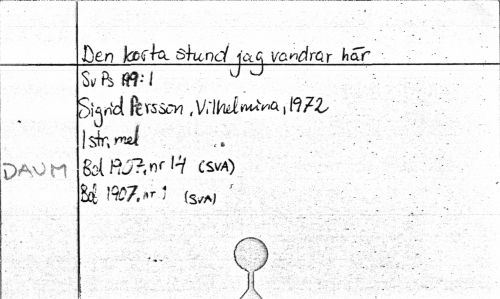 Den korta stund jag vandrar här
Sv Ps :1
Sigrid Persson, Vilhelmina, 1972
1 str, mel
DAUM Bd 1907, nr 14 (SVA)
Bd 1907, nr 1 (SVA)